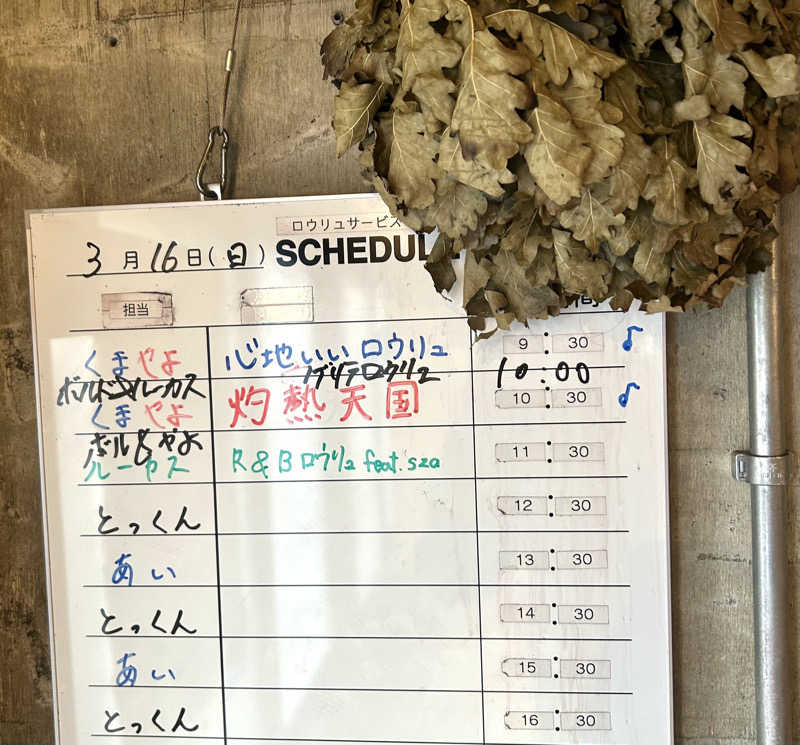 ロウリュサービス
3月16日(日) SCHEDUL
担当
くまやよ 心地いいロウリュ 9:30 ♪
10:00
くまやよ 灼熱天国 10:30 ♪
ルーカス R&Bロウリュ feat.sza 11:30
とっくん 12:30
あい 13:30
とっくん 14:30
あい 15:30
とっくん 16:30